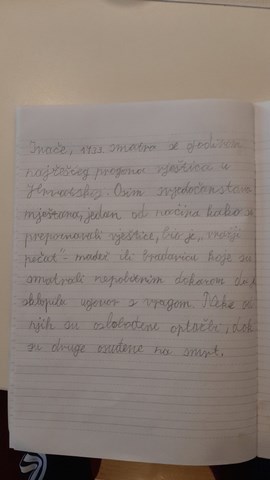 Inače, se smatra se godinom
najtežeg progona vještica u
Hrvatskoj. Osim svjedočanstava
mještana, jedan od načina kako su
prepoznavali vještice, bio je „vražji
pečat" - madež ili bradavica koje su
smatrali nepobitnim dokazom da je
sklopila ugovor s vragom. Neke od
njih su oslobođene optužbi, dok
su druge osuđene na smrt.